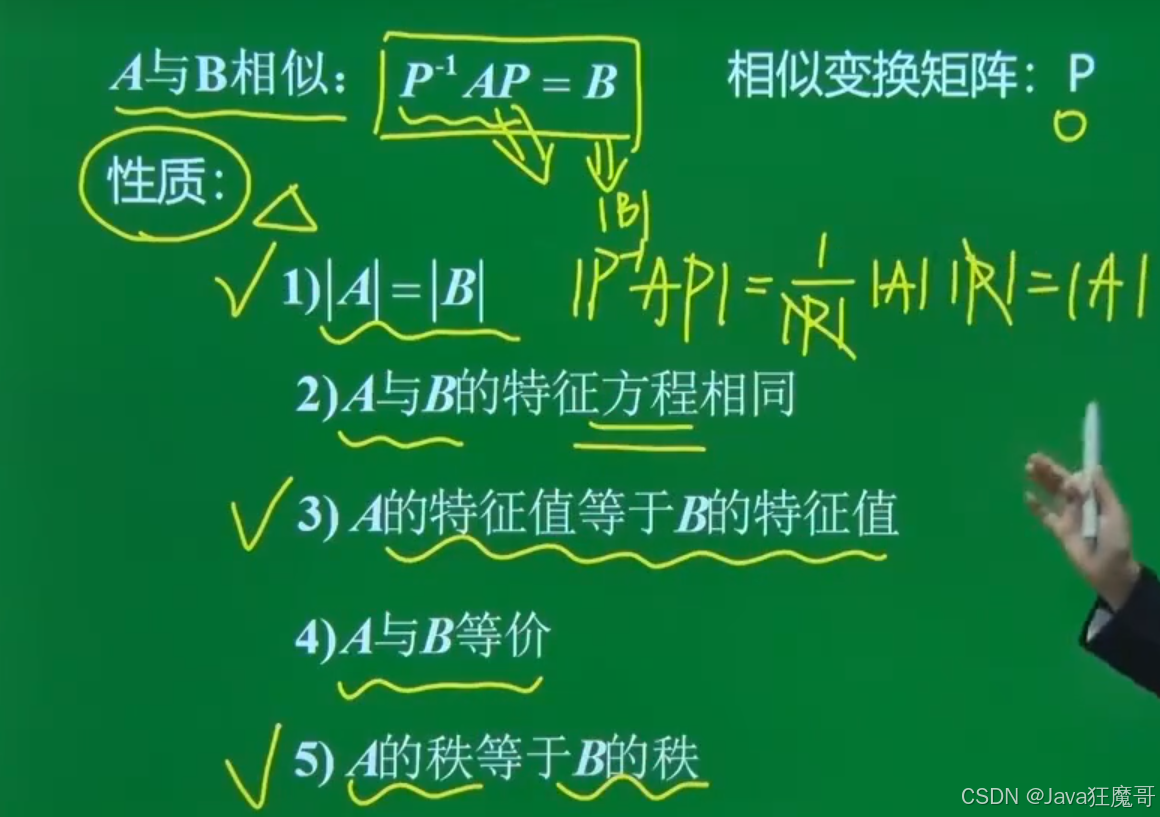 A与B相似： P⁻¹AP = B 相似变换矩阵：P
性质：
|B|
1)|A|=|B| |P⁻¹AP| = 1/|P| |A| |P| = |A|
2)A与B的特征方程相同
3) A的特征值等于B的特征值
4)A与B等价
5) A的秩等于B的秩
CSDN @Java狂魔哥